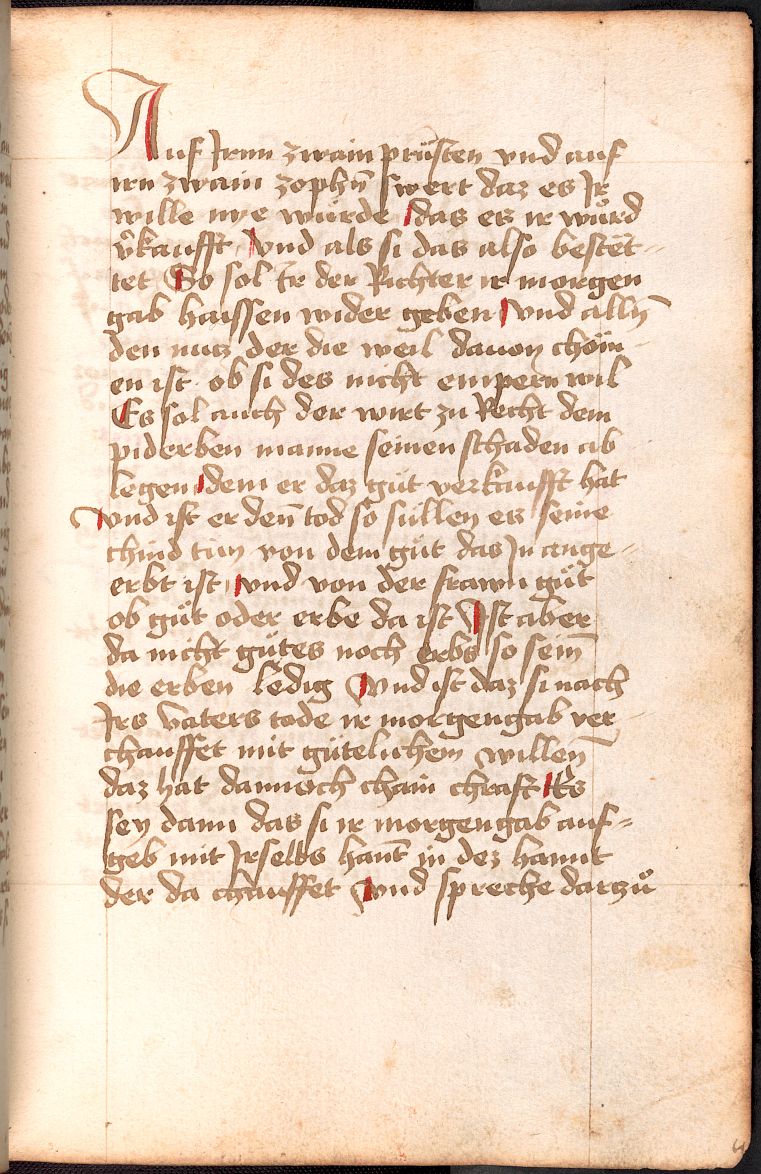 Auf Jrnn zwain prüsten vnd auf
irn zwain zophn̄ swert daz es Jr
wille nye würde das es ir würd
v̄kaufft Vnd als si das also bestēt=
tet So sol Er der Richter ir morgen
gab haissen wider geben Vnd alln̄
den nutz der die weil dauon chöm-
en ist ob si des nicht empern wil
Es sol auch der wirt zu Recht dem
piderben manne seinen schaden ab
legen dem er daz güt verkaufft hat
Vnd ist er den̄ tod so süllen es seine
chind tun von dem güt das Jn ange=
erbt ist vnd von der frawn güt
ob güt oder erbe da ist Jst aber
da nicht gütes noch erbs so sein̄
die erben ledig Vnd ist daz si nach
Jrs Vaters tode ir morgengab ver-
chauffet mit gütelichem willen̄
daz hat dannoch chain chraft Es
sey dann das si ir morgengab auf=
geb mit Jrselbs han̄t in dez hannt
der da chauffet Vnd spreche dartzů